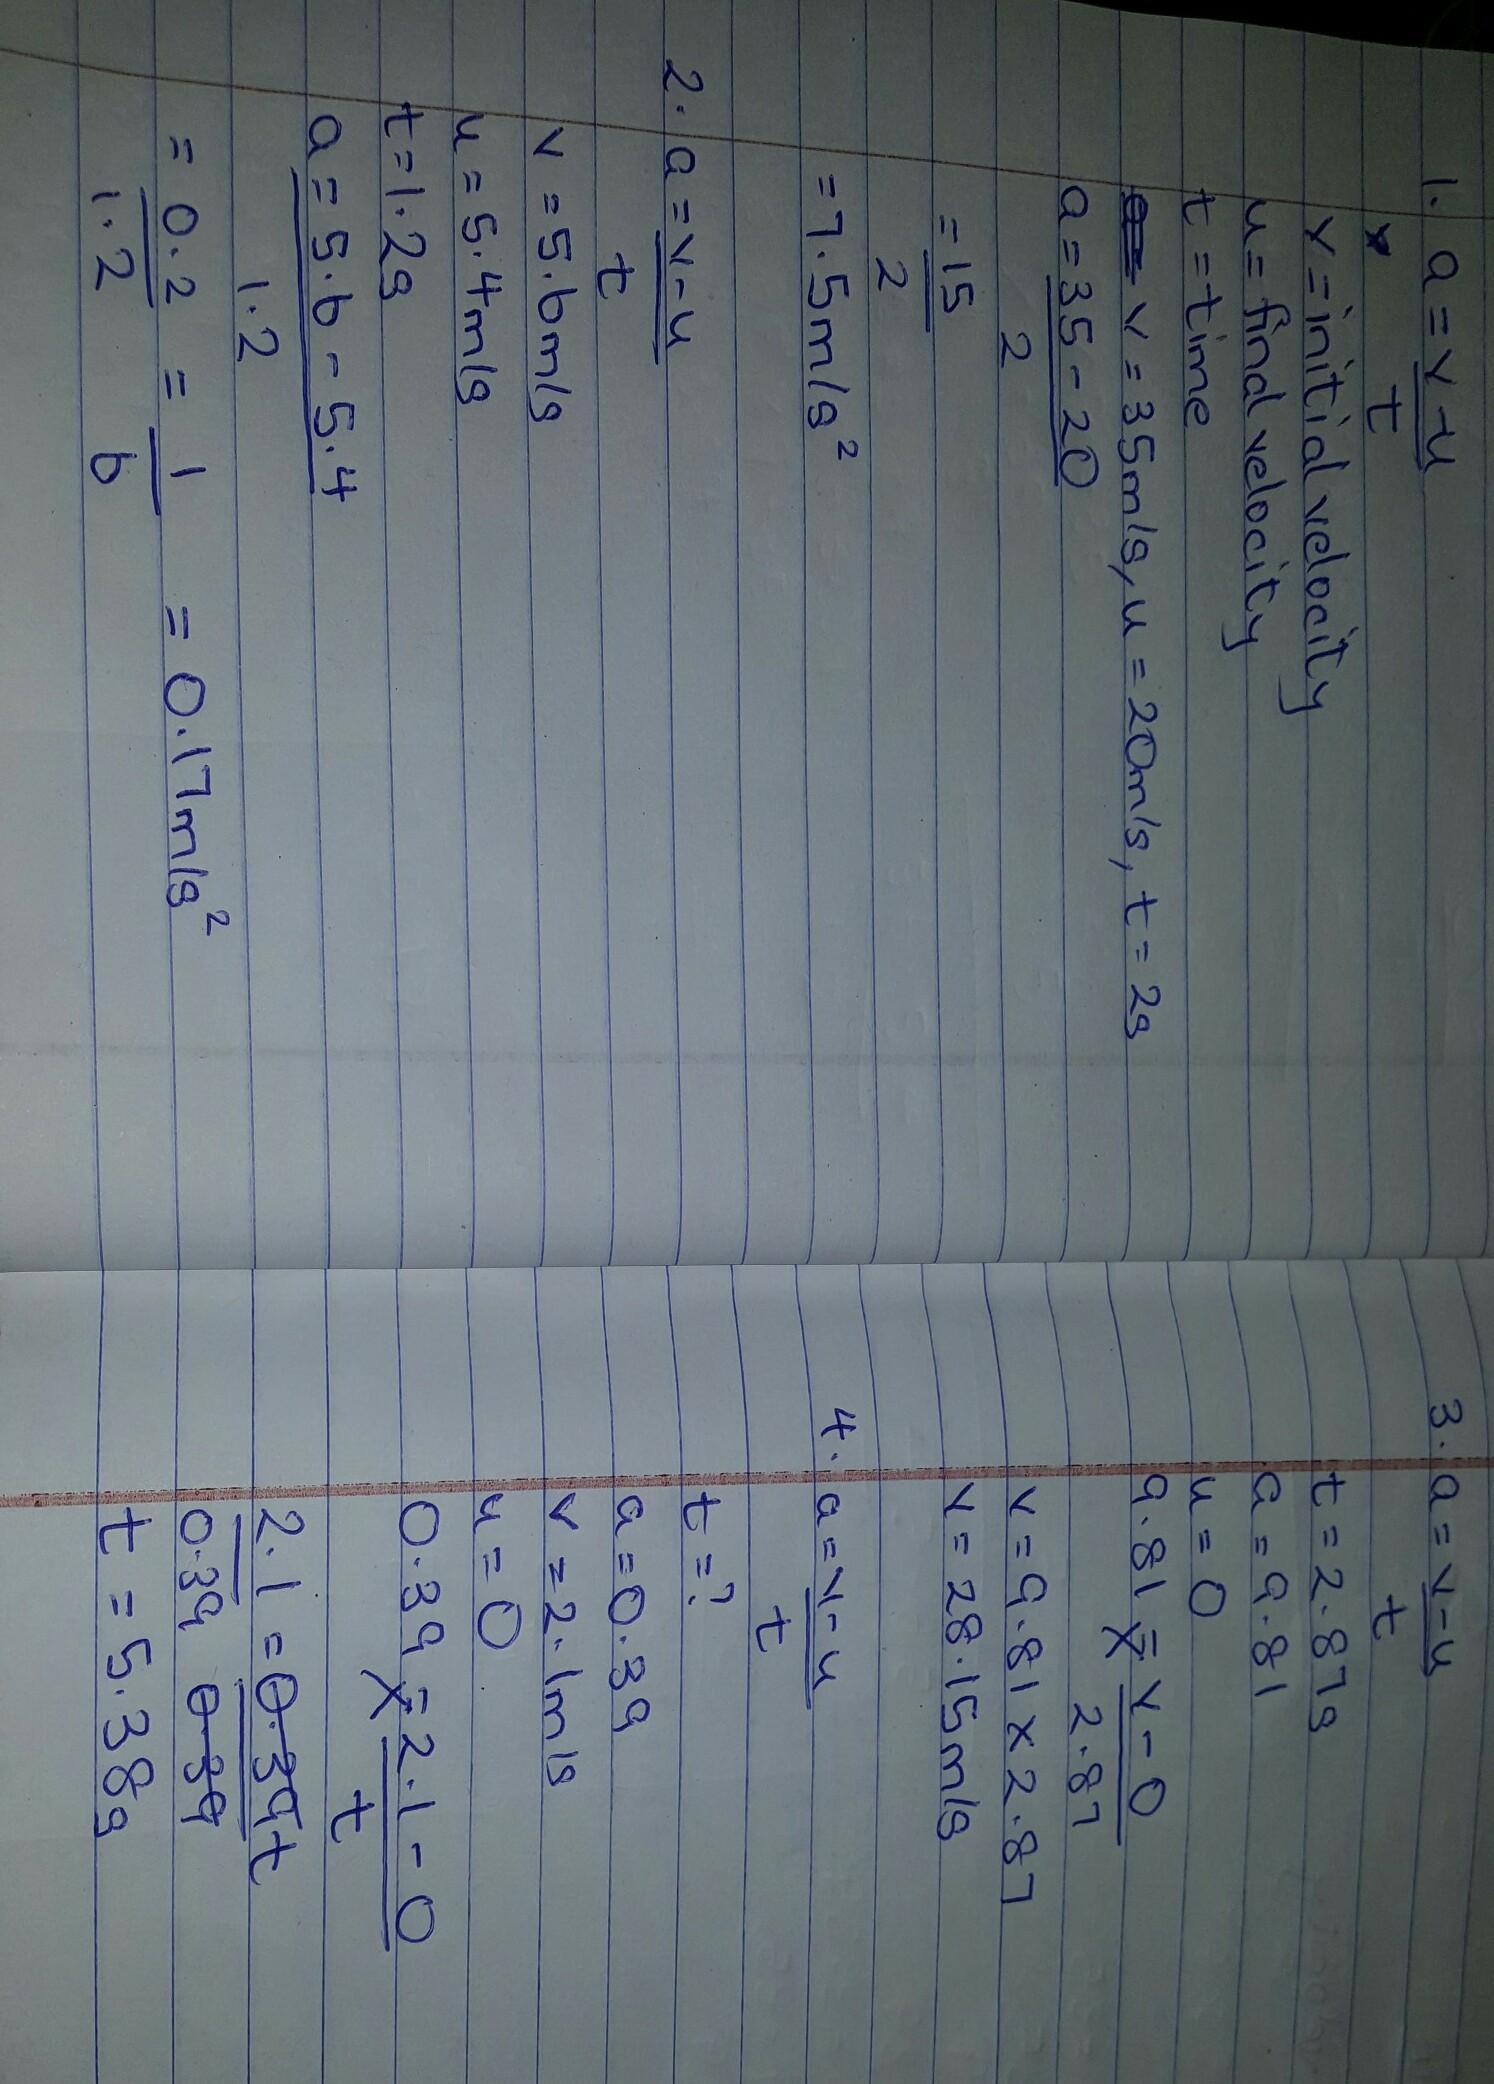 1. a = v - u
t
v = initial velocity
u = final velocity
t = time
v = 35m/s, u = 20m/s, t = 2s
a = 35 - 20
2
= 15
2
= 7.5m/s²
2. a = v - u
t
v = 5.6m/s
u = 5.4m/s
t = 1.2s
a = 5.6 - 5.4
1.2
= 0.2 = 1 = 0.17m/s²
1.2 6
3. a = v - u
t
t = 2.87s
a = 9.81
u = 0
9.81 = v - 0
2.87
v = 9.81 x 2.87
v = 28.15m/s
4. a = v - u
t
t = ?
a = 0.39
v = 2.1m/s
u = 0
0.39 = 2.1 - 0
t
2.1 = 0.39t
0.39 0.39
t = 5.38s